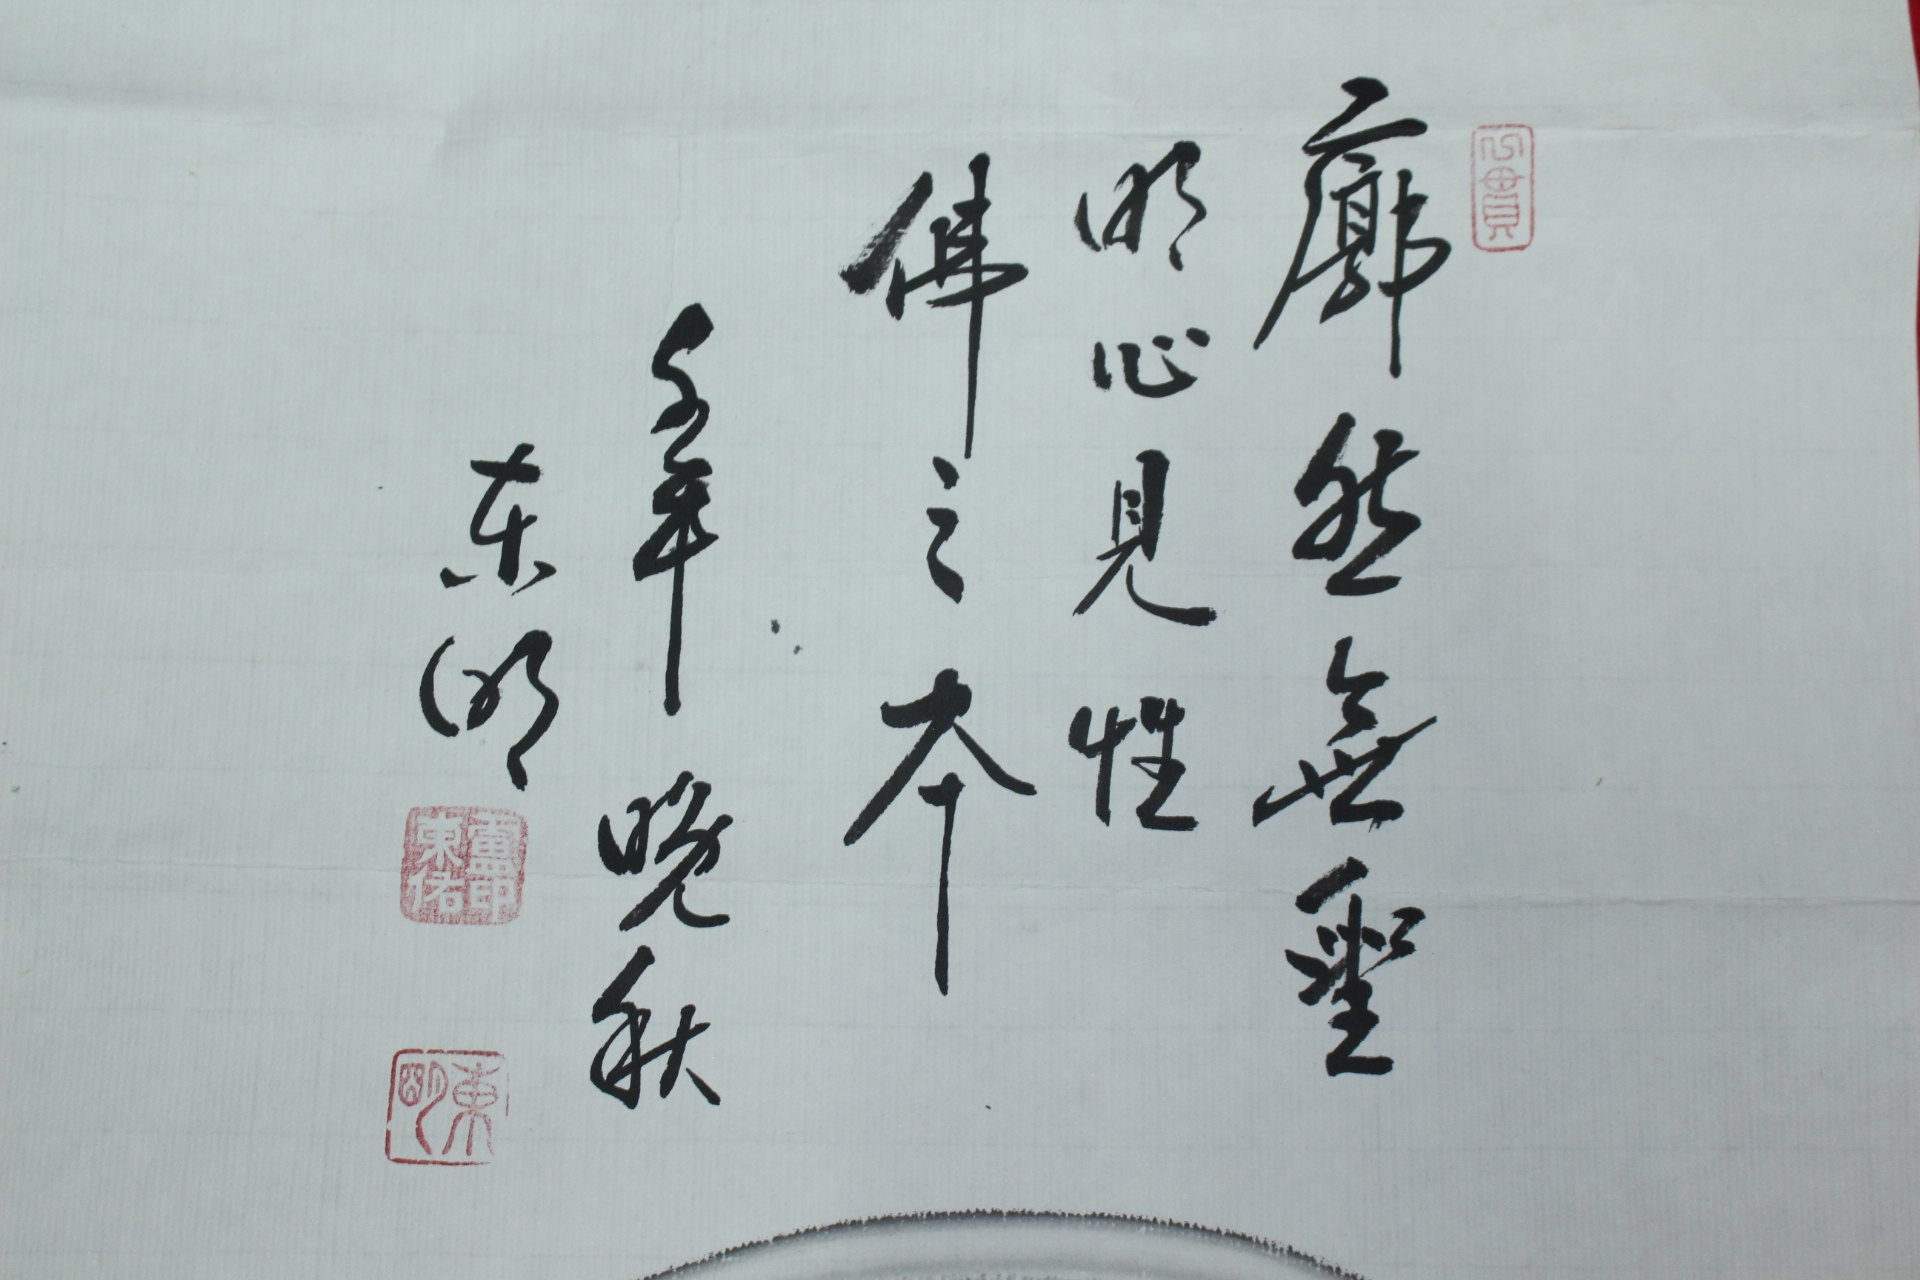 心貫
廓然無聖
明心見性
之本
年晚秋
東明
盧印東佑
東明